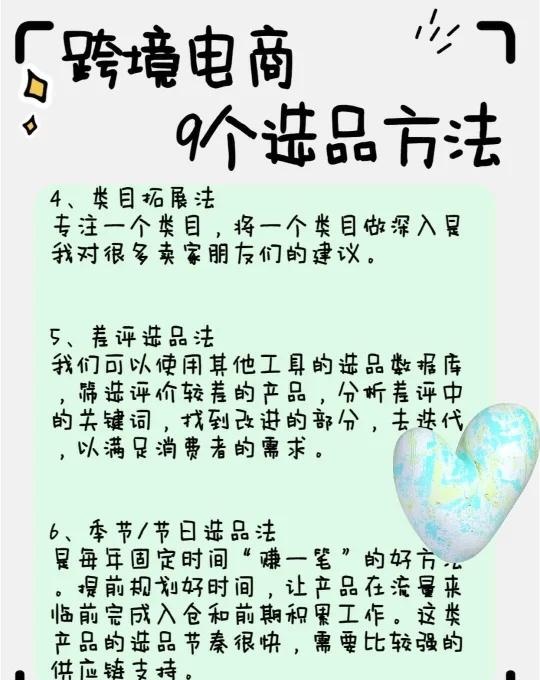 跨境电商
9个选品方法
4、类目拓展法
专注一个类目，将一个类目做深入是
我对很多卖家朋友们的建议。
5、差评选品法
我们可以使用其他工具的选品数据库
，筛选评价较差的产品，分析差评中
的关键词，找到改进的部分，去迭代
，以满足消费者的需求。
6、季节/节日选品法
是每年固定时间“赚一笔”的好方法
。提前规划好时间，让产品在流量来
临前完成入仓和前期积累工作。这类
产品的选品节奏很快，需要比较强的
供应链支持。